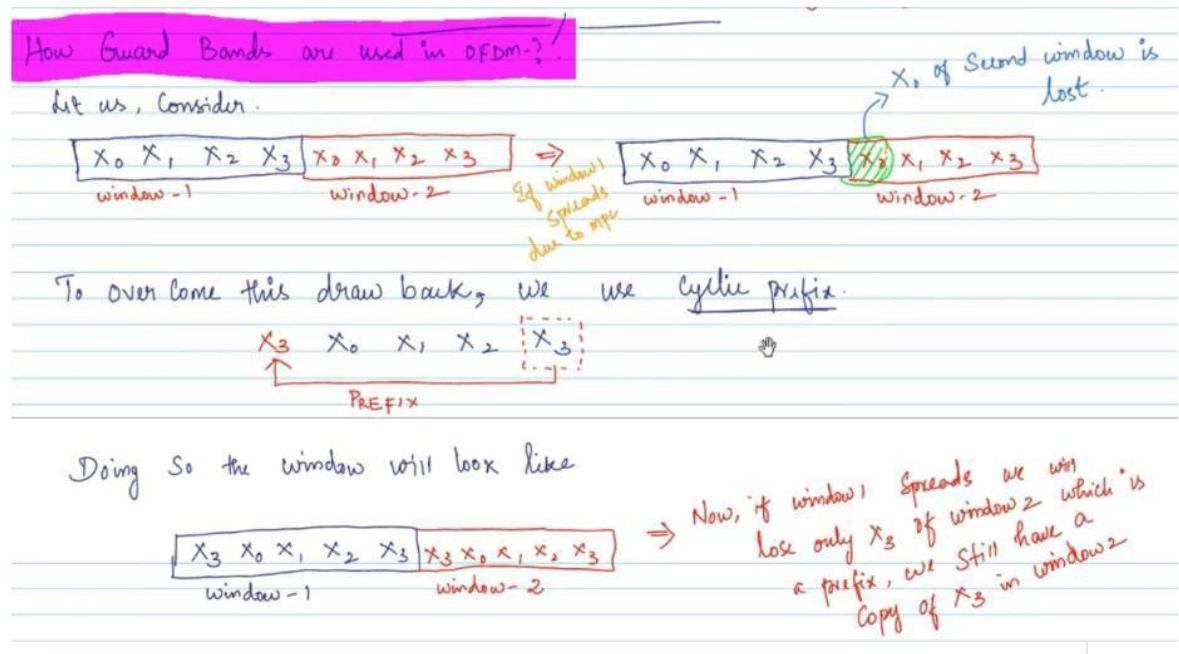 How Guard Bands are used in OFDM-?
Let us, Consider.
X₀ of Second window is lost.
X₀ X₁ X₂ X₃ X₀ X₁ X₂ X₃
window-1 window-2
⇒
If window1
spreads
due to mpc
X₀ X₁ X₂ X₃ X₀ X₁ X₂ X₃
window-1 window-2
To over Come this draw back, we use Cyclic prefix.
X₃ X₀ X₁ X₂ X₃
PREFIX
Doing So the window will look like
X₃ X₀ X₁ X₂ X₃ X₃ X₀ X₁ X₂ X₃
window-1 window-2
⇒ Now, if window1 Spreads we will
lose only X₃ of window2 which is
a prefix, we still have a
Copy of X₃ in window2